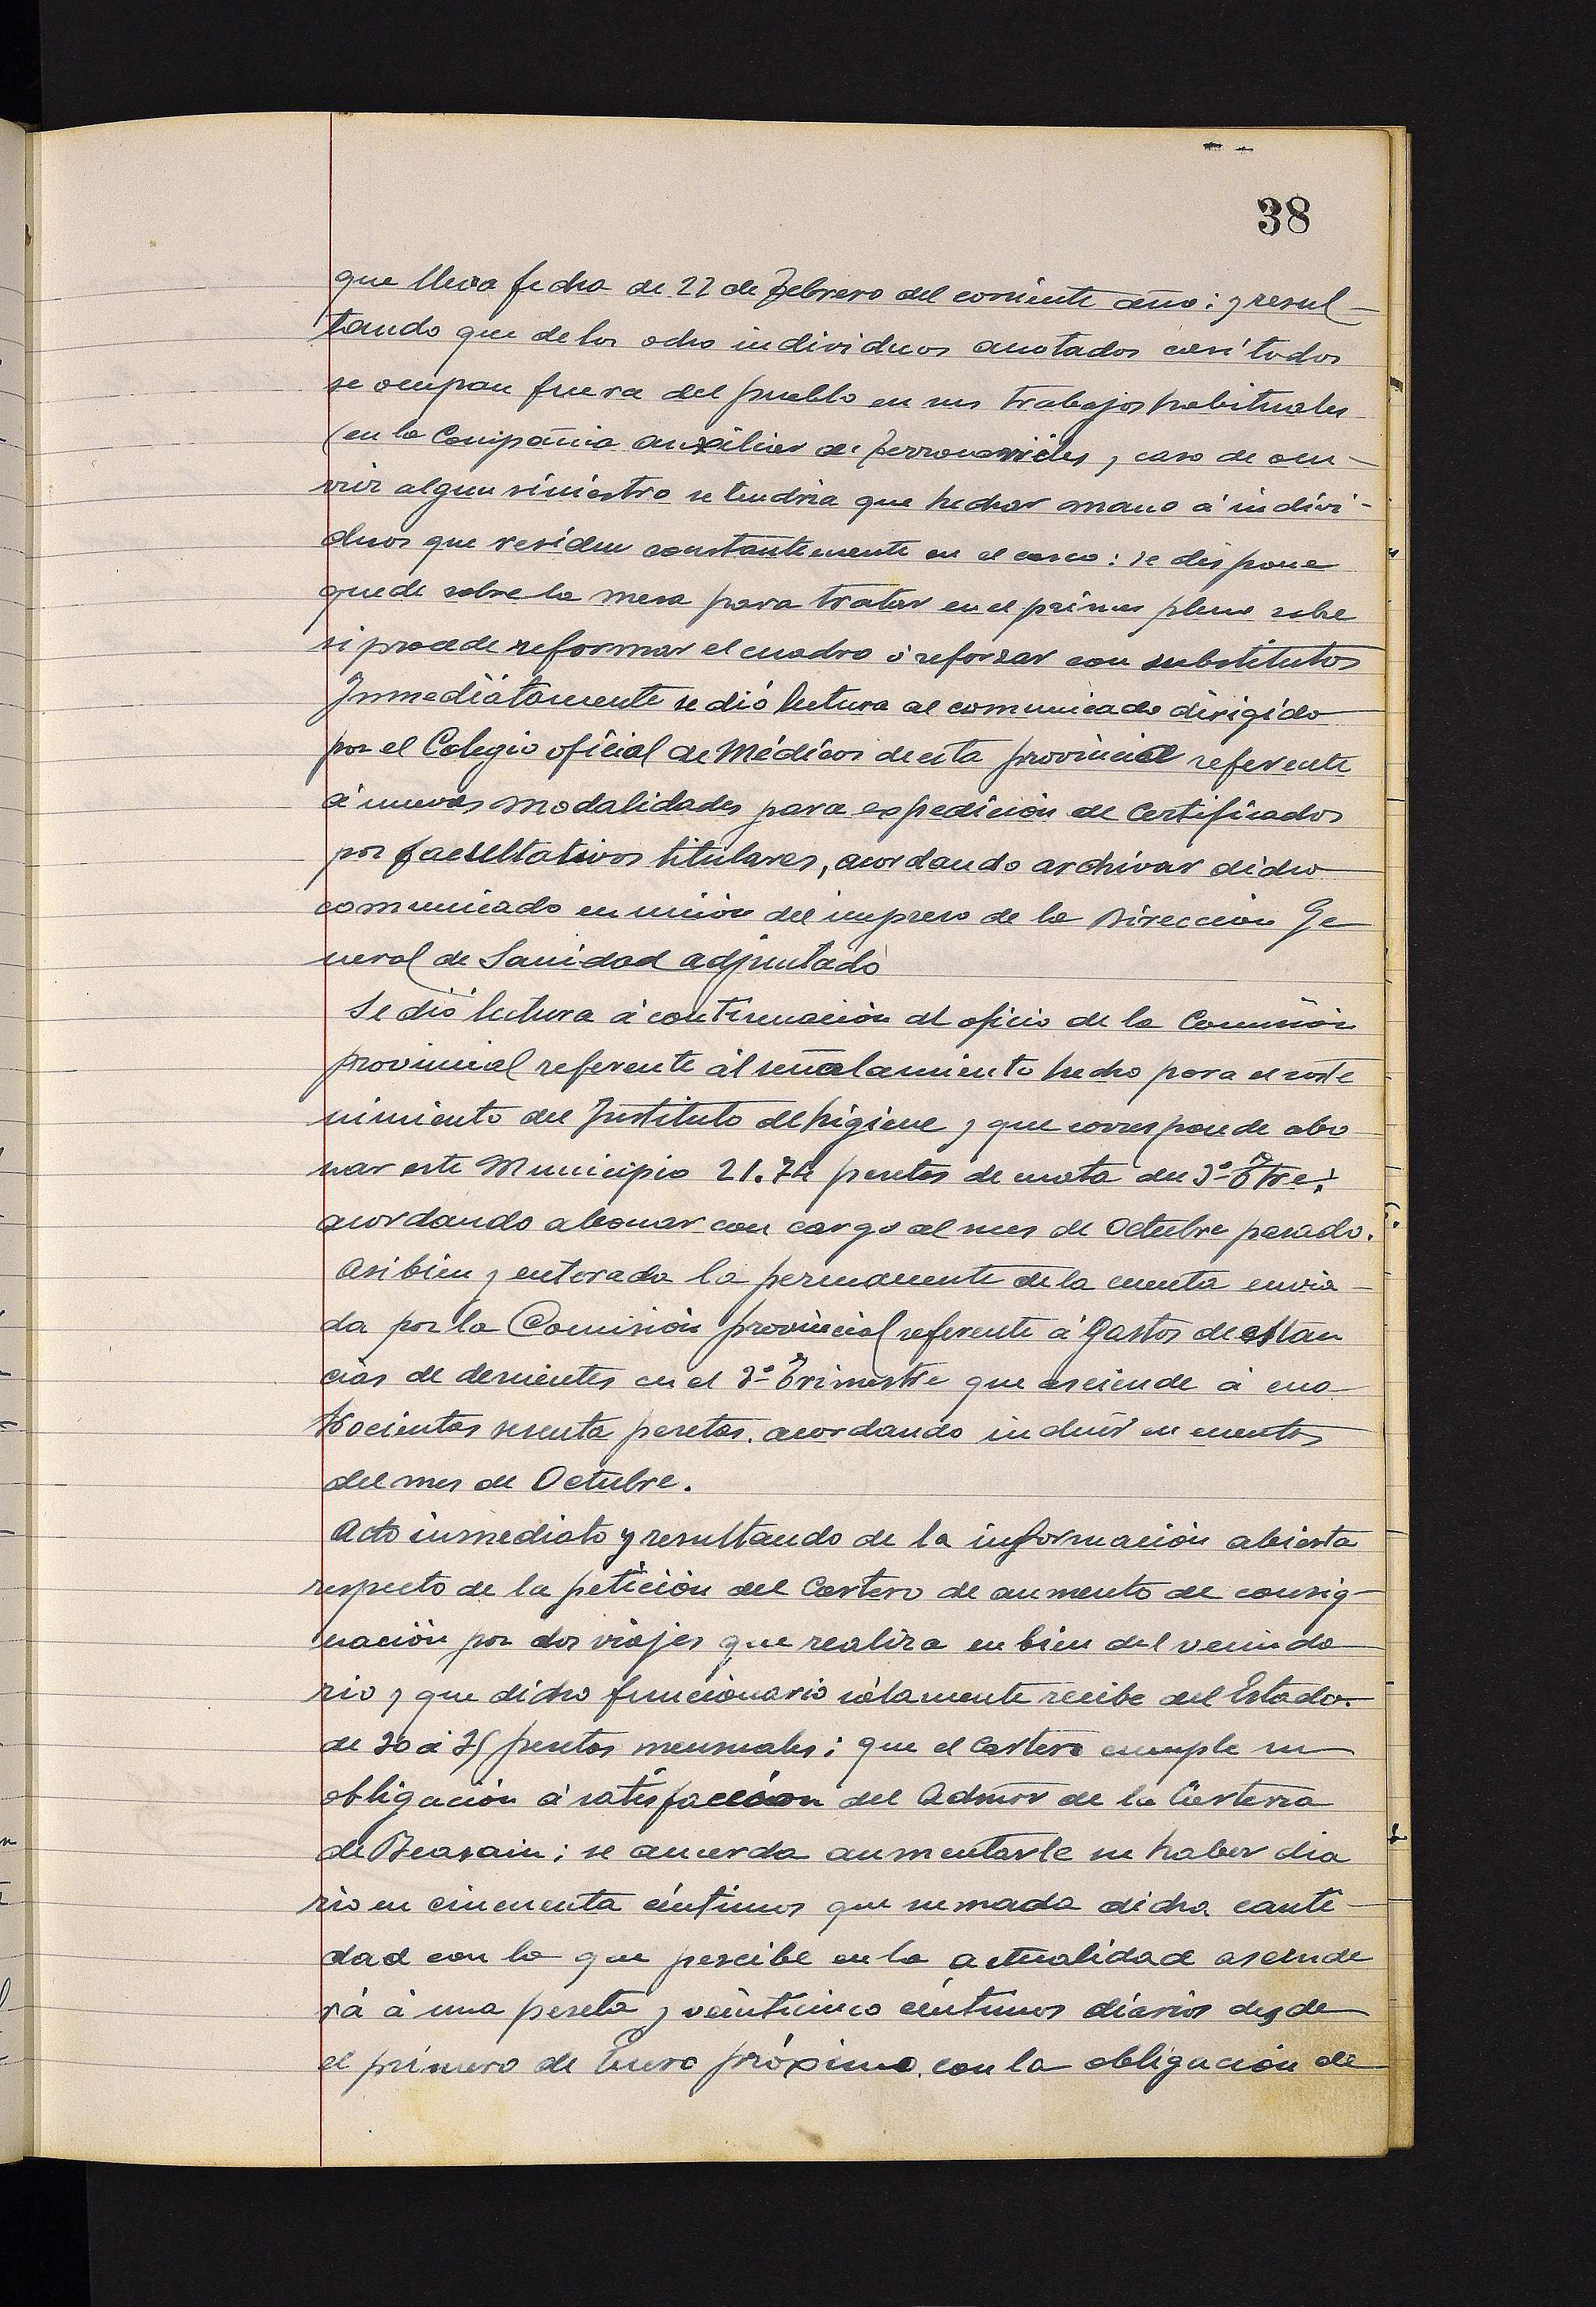 38
que lleva fecha de 22 de Febrero del corriente año: y resul-
tando que de los ocho individuos anotados casi todos
se ocupan fuera del pueblo en sus trabajos habituales
(en la Compañia auxiliar de Ferrocarriles, caso de ocu-
rrir algun siniestro se tendria que hechar mano á indivi-
duos que residen constantemente en el casco: se dispone
quede sobre la mesa para tratar en el primer pleno sobre
si procede reformar el cuadro ó reforzar con substitutos
Inmediatamente se dió lectura al comunicado dirigido
por el Colegio oficial de Médicos de esta provincia referente
á nuevas modalidades para expedición de Certificados
por facultativos titulares, acordando archivar dicho
comunicado en unión del impreso de la Dirección Ge
neral de Sanidad adjuntado
Se dió lectura á continuación al oficio de la Comisión
provincial referente ál señalamiento hecho para el soste
nimiento del Instituto de higiene y que corresponde abo
nar este Municipio 21.74 pesetas de cuota del 3º Ttre:
acordando abonar con cargo al mes de Octubre pasado.
Asi bien y enterada la permanente de la cuenta envia-
da por la Comisión provincial referente á Gastos de estan
cias de dementes en el 3º Trimestre que asciende á cua
trocientas sesenta pesetas. acordando incluir en cuentas
del mes de Octubre.
Acto inmediato y resultando de la información abierta
respecto de la petición del Cartero de aumento de consig-
nación por dos viajes que realiza en bien del vecinda
rio y que dicho funcionario sólamente recibe del Estado.
de 30 á 35 pesetas mensuales; que el Cartero cumple su
obligación á satisfacción del Admor de la Carteria
de Beasain; se acuerda aumentarle su haber dia
rio en cincuenta céntimos que sumada dicha canti-
dad con la que percibe en la actualidad asciende
rá á una peseta y veinticinco céntimos diarios desde
el primero de Enero próximo. con la obligación de